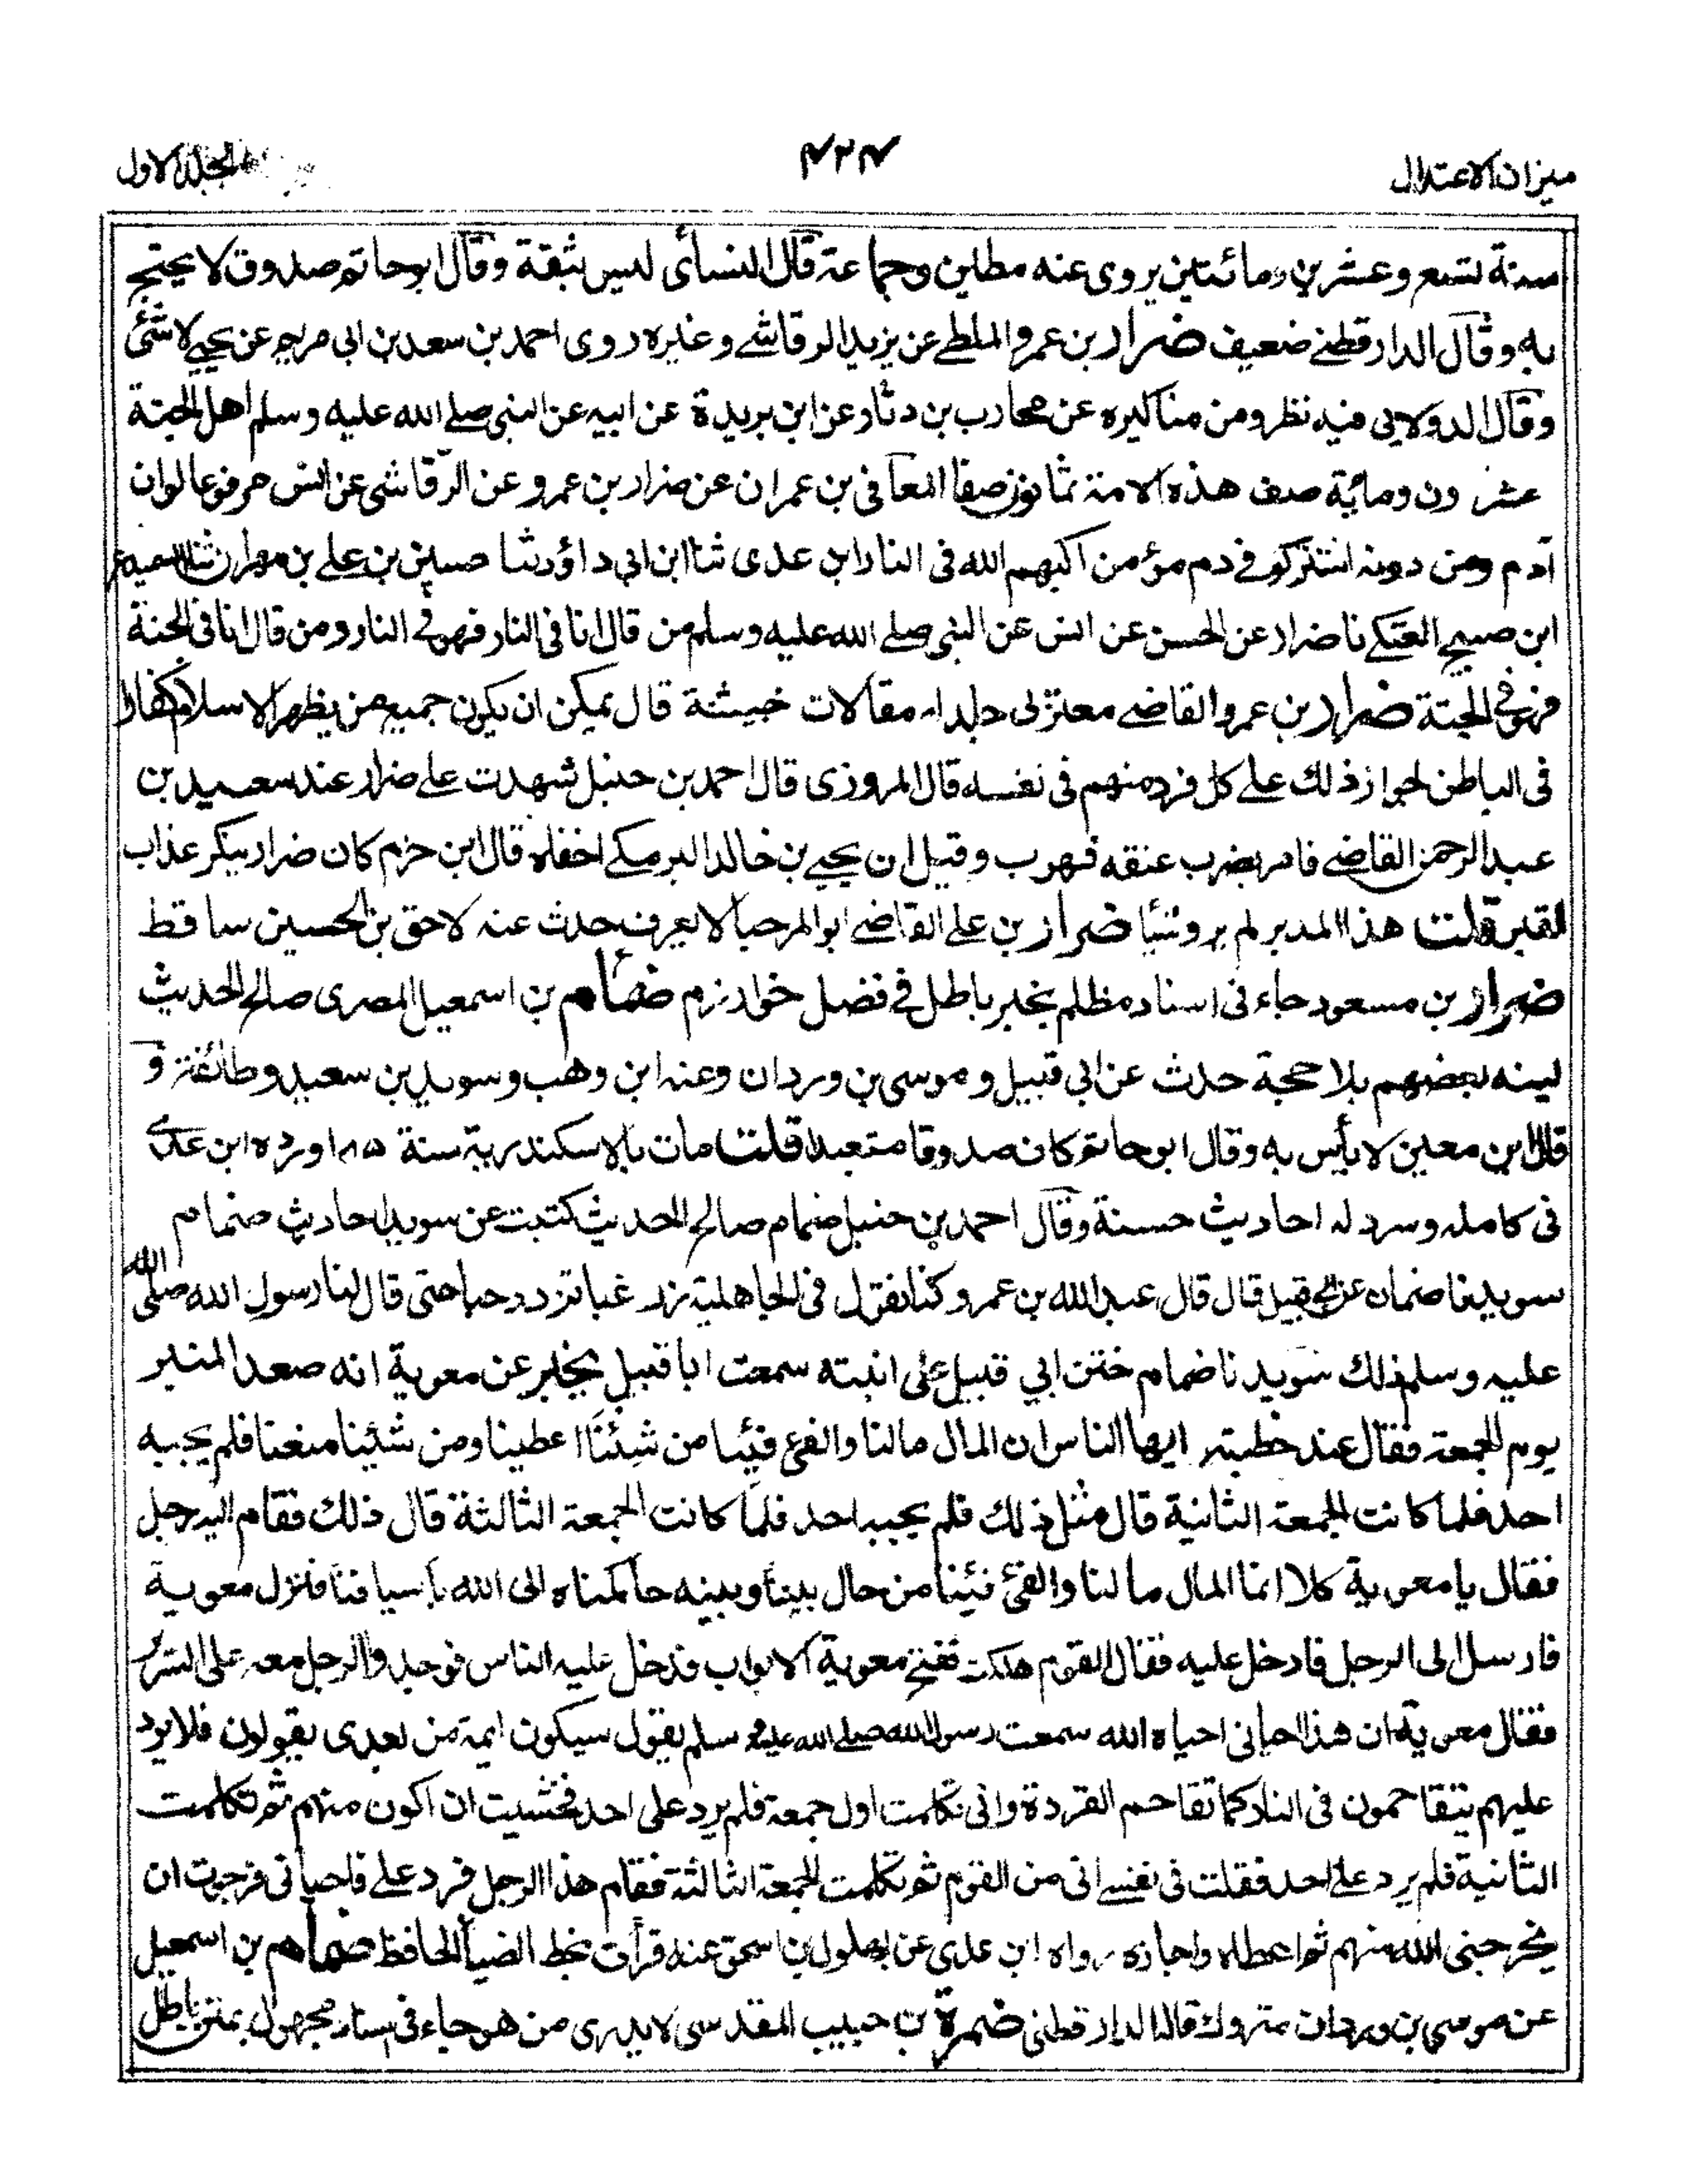 ميزان الاعتدال
٤٢٤
الجلد الاول
سنة تسع وعشرين ومائتين يروى عنه مطين وجماعة قال النسائى ليس بثقة وقال ابو حاتم صدوق لا يحتج
به وقال الدارقطنے ضعيف ضرار بن عمرو الملطے عن يزيد الرقاشے وغيره روى احمد بن سعد بن ابى مريم عن يحيى لا شئ
وقال الدولابى فيه نظر ومن مناكيره عن محارب بن دثار عن ابن بريدة عن ابيه عن النبى صلے الله عليه وسلم اهل الجنة
عشرون ومائة صف هذه الامة ثمانون صفا المعافى بن عمران عن ضرار بن عمرو عن الرقاشى عن انس مرفوعا لو ان
آدم ومن دونه اشتركوا فے دم مؤمن اكبهم الله فى النار ابن عدى ثنا ابن ابى داؤد ثنا حسين بن على بن مهران ثنا
ابن صبيح العتكے نا ضرار عن الحسن عن انس عن النبى صلے الله عليه وسلم من قال انا فى النار فهو فے النار ومن قال انا فى الجنة
فهو فے الجنة ضرار بن عمرو القاضے معتزلى جلد له مقالات خبيثة قال يمكن ان يكون جميع من يظهر الاسلام كفارا
فى الباطن لجواز ذلك على كل فرد منهم فى نفسه قال المروزى قال احمد بن حنبل شهدت على ضرار عند سعيد بن
عبد الرحمن القاضے فامر بضرب عنقه فهرب وقيل ان يحيے بن خالد البرمكے اخفاه قال ابن حزم كان ضرار ينكر عذاب
القبر قلت هذا المدبر لم يرو شيئا ضرار بن على القاضے ابو المرحبا لا يعرف حدث عنه لاحق بن الحسين ساقط
ضرار بن مسعود جاء فى اسناد مظلم بخبر باطل فے فضل خوارزم ضمام بن اسمعيل المصرى صالح الحديث
لينه بعضهم بلا حجة حدث عن ابى قبيل وموسى بن وردان وعنه ابن وهب وسويد بن سعيد وطائفة و
قال ابن معين لا بأس به وقال ابو حاتم كان صدوقا متعبدا قلت مات بالاسكندرية سنة ١٨٥ اورده ابن عدى
فى كامله وسرد له احاديث حسنة وقال احمد بن حنبل ضمام صالح الحديث كتبت عن سويد احاديث ضمام
سويد نا ضمام عن ابى قبيل قال قال عبد الله بن عمرو كنا نقول فى الجاهلية زر غبا تزدد حبا حتى قال لنا رسول الله صلى الله
عليه وسلم ذلك سويد نا ضمام ختن ابي قبيل على ابنته سمعت ابا قبيل يخبر عن معوية انه صعد المنبر
يوم الجمعة فقال عند خطبته ايها الناس ان المال مالنا والفئ فيئنا من شئنا اعطينا ومن شئينا منعنا فلم يجبه
احد فلما كانت الجمعة الثانية قال مثل ذلك فلم يجبه احد فلما كانت الجمعة الثالثة قال ذلك فقام اليه رجل
فقال يا معوية كلا انما المال مالنا والفئ فيئنا من حال بيننا وبينه حاكمناه الى الله بأسيافنا فنزل معوية
فارسل الى الرجل فادخل عليه فقال القوم هلكت ففتح معوية الابواب فدخل عليه الناس فوجدوا الرجل معه على السرير
فقال معوية ان هذا احيانى احياه الله سمعت رسول الله صلے الله عليه وسلم يقول سيكون ايمة من بعدى يقولون فلا يرد
عليهم يتقاحمون فى النار كما تقاحم القردة وانى تكلمت اول جمعة فلم يرد على احد فخشيت ان اكون منهم ثم تكلمت
الثانية فلم يرد على احد فقلت فى نفسے انى من القوم ثم تكلمت الجمعة الثالثة فقام هذا الرجل فرد على فاحيانى فرجوت ان
يخرجنى الله منهم ثم اعطاه واجازه رواه ابن عدي عن بهلول بن اسحق عنه قرأت بخط الضيأ الحافظ ضمام بن اسمعيل
عن موسى بن وردان متروك قاله الدارقطنى ضمرة بن حبيب المقدسى لا يدرى من هو جاء فى اسناد مجهول بمتن باطل